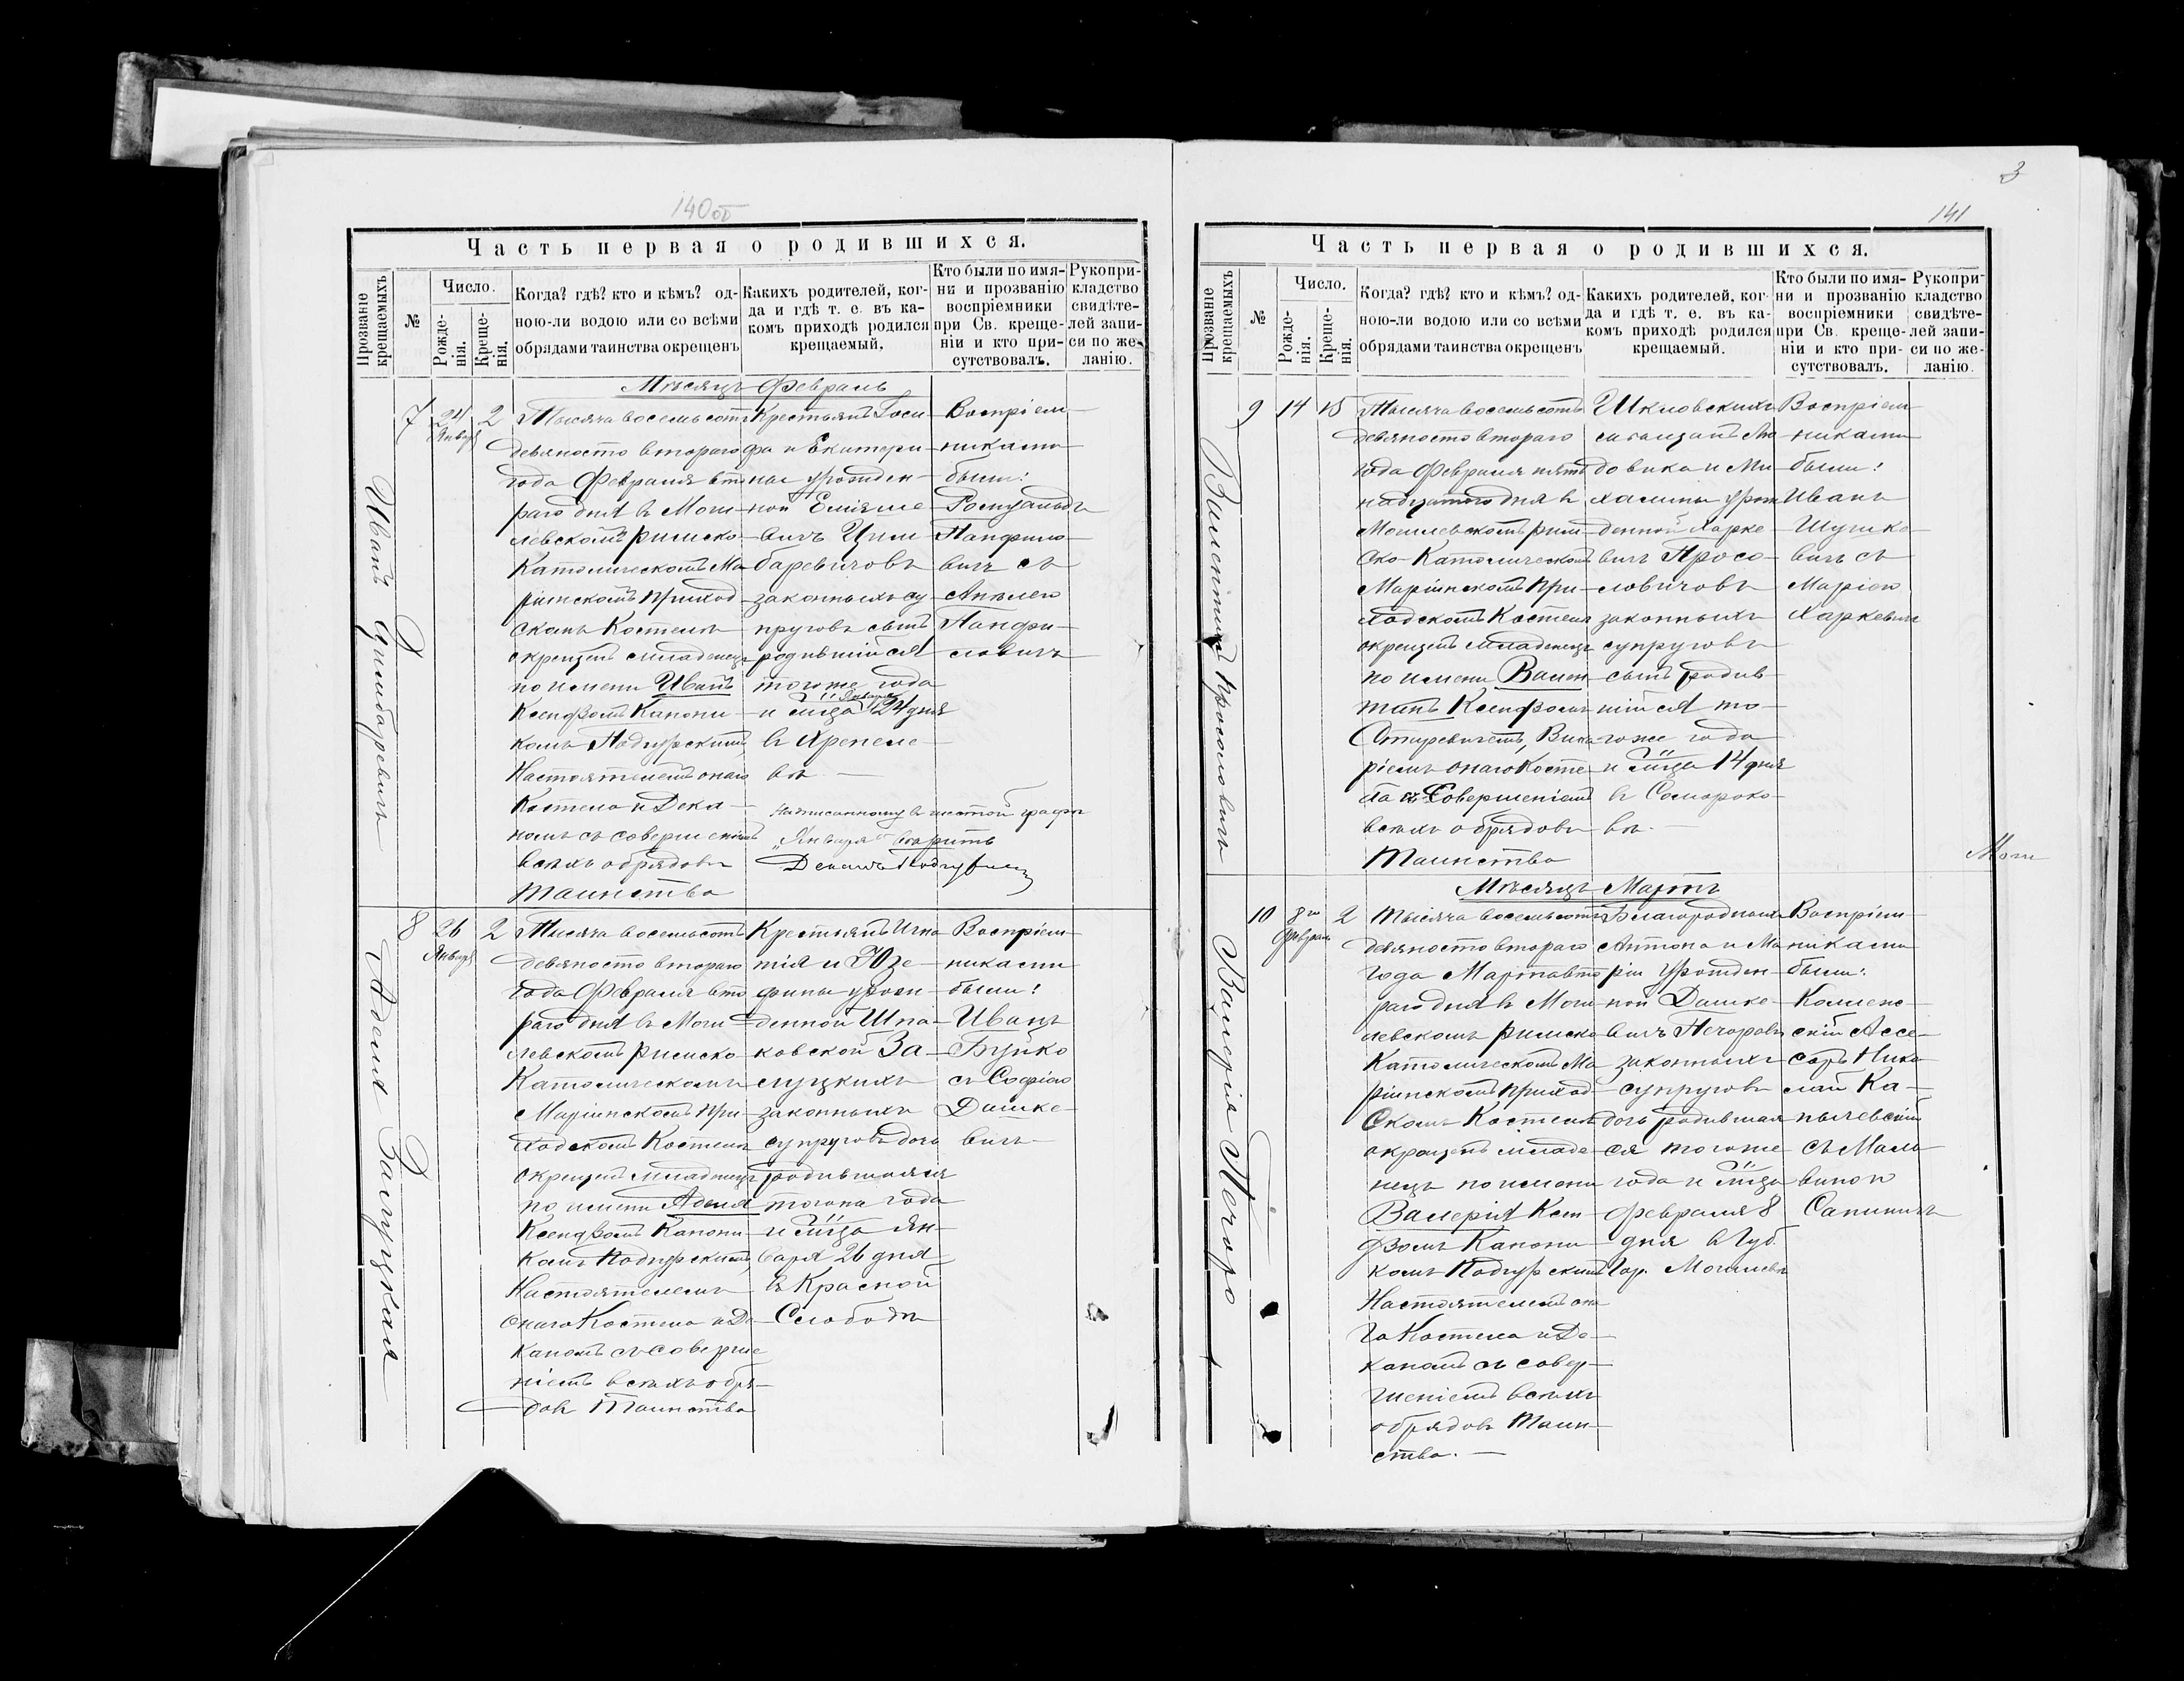 140об
Часть первая о родившихся.
Прозваніе крещаемыхъ
№
Число.
Рожде-
нія.
Креще-
нія.
Когда? гдѣ? кто и кѣмъ? од-
ною-ли водою или со всѣми
обрядами таинства окрещенъ
Какихъ родителей, ког-
да и гдѣ т. е. въ ка-
комъ приходѣ родился
крещаемый.
Кто были по имя-
ни и прозванію
воспріемники
при Св. креще-
ніи и кто при-
сутствовалъ.
Рукопри-
кладство
свидѣте-
лей запи-
си по же-
ланію.
Мѣсяцъ Февраль
Иванъ Цимбаревичъ
7
24
Январ
2
Тысяча восемьсотъ
девяносто втораго
года Февраля вто
раго дня въ Моги
левскомъ римско
Католическомъ Ма
ріинскомъ приход
скомъ Костелѣ
окрещенъ младенецъ
по имени Иванъ
Ксендзомъ Канони
комъ Подгурскимъ,
Настоятелемъ онаго
Костела и Дека
номъ съ совершеніемъ
всѣхъ обрядовъ
таинства
Крестьянъ Госи
фа и Екатери
ны урожден
ной
вичъ Цим
баревичовъ
законныхъ су
пруговъ сынъ
родившійся
тогоже года
и м̃ца Января 24 дня
въ Хрепеле
вѣ
Написанному въ шестой графѣ
„Января" вѣрить
Деканъ Подгурскій
Воспріем
никами
были:
Ромуальдъ
Панфило
вичъ съ
Анелею
Панфи
ловичъ
Аделя Залуцкая
8
26
Январ
2
Тысяча восемьсотъ
девяносто втораго
года Февраля вто
раго дня въ Моги
левскомъ римско
Католическомъ
Маріинскомъ при
ходскомъ Костелѣ
окрещенъ младенецъ
по имени Аделя
Ксендзомъ Канони
комъ Подгурскимъ,
Настоятелемъ
онаго Костела и Де
каномъ съ соверше
ніемъ всѣхъ обря
довъ Таинства
Крестьянъ Игна
тія и Юзе
фины урож
денной Шпа
ковской За
луцкихъ
законныхъ
супруговъ дочь
родившаяся
тогоже года
и м̃ца Ян
варя 26 дня
въ Красной
Слободѣ
Воспріем
никами
были:
Иванъ
Буйко
съ Софіею
Дашке
вичъ
3
141
Часть первая о родившихся.
Прозваніе крещаемыхъ
№
Число.
Рожде-
нія.
Креще-
нія.
Когда? гдѣ? кто и кѣмъ? од-
ною-ли водою или со всѣми
обрядами таинства окрещенъ
Какихъ родителей, ког-
да и гдѣ т. е. въ ка-
комъ приходѣ родился
крещаемый.
Кто были по имя-
ни и прозванію
воспріемники
при Св. креще-
ніи и кто при-
сутствовалъ.
Рукопри-
кладство
свидѣте-
лей запи-
си по же-
ланію.
Валентинъ Просоловичъ
9
14
15
Тысяча восемьсотъ
девяносто втораго
года Февраля пят
надцатого дня въ
Могилевскомъ рим
ско-Католическомъ
Маріинскомъ При
ходскомъ Костелѣ
окрещенъ младенецъ
по имени Вален
тинъ Ксендзомъ
Вика
ріемъ онаго Косте
ла съ Совершеніемъ
всѣхъ обрядовъ
Таинства
Шкловскихъ
мѣщанъ Лю
довика и Ми
халины урож
денной Харке
вичъ Просо
ловичовъ
законныхъ
супруговъ
сынъ родив
шійся то
гоже года
и м̃ца 14 дня
въ Сомороко
вѣ.
Воспріем
никами
были:
Иванъ
Шушке
вичъ съ
Маріею
Харкевичъ
Моги
Мѣсяцъ Мартъ
Валерія Печоро
10
8го
Февраль
2
Тысяча восемьсотъ
девяносто втораго
года Марта вто
раго дня въ Моги
левскомъ римско
Католическомъ Ма
ріинскомъ приход
скомъ Костелѣ
окрещенъ младе
нецъ по имени
Валерія Ксен
дзомъ Канони
комъ Подгурскимъ
Настоятелемъ она
го Костела и Де
каномъ съ совер
шеніемъ всѣхъ
обрядовъ Таин
ства.
Благородныхъ
Антона и Ма
ріи урожден
ной Дашке
вичъ Печоровъ
законныхъ
супруговъ
дочь родившая
ся тогоже
года и м̃ца
Февраля 8
дня въ Губ.
гор. Могилевѣ
Воспріем
никами
были:
Коллеж
скій Ассе
соръ Нико
лай Ка
пычевскій
съ Маль
виною